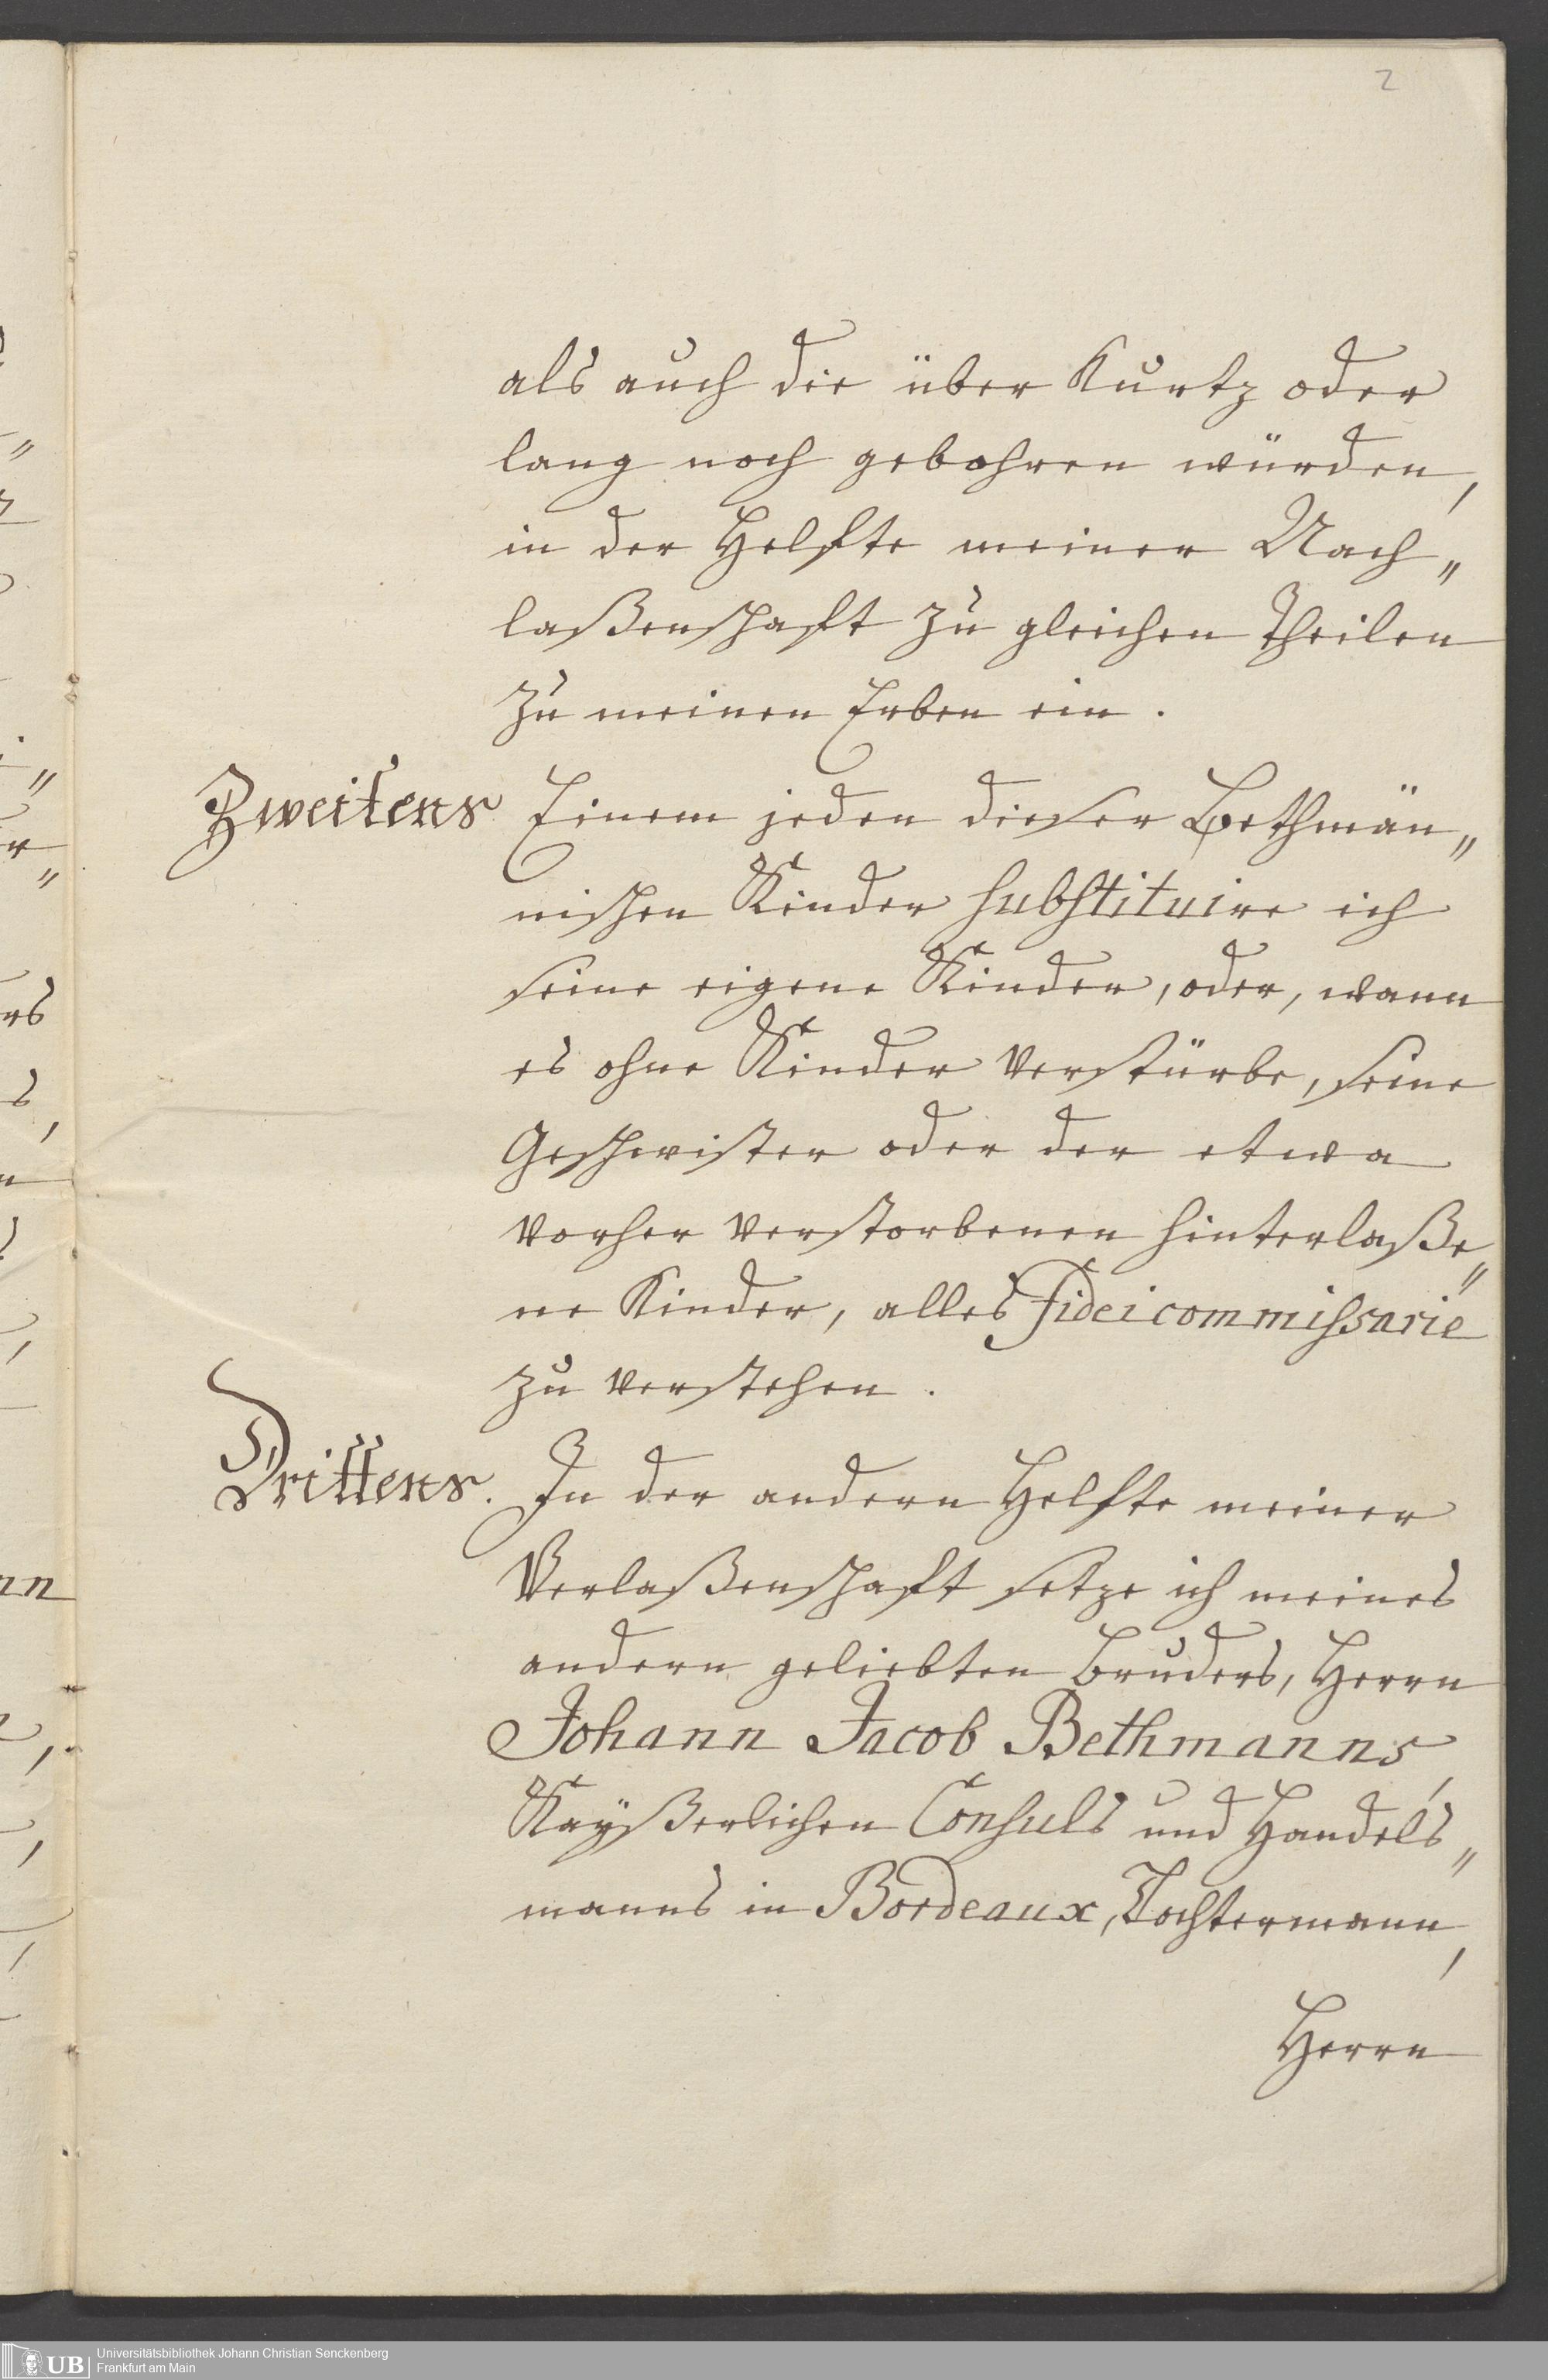 2
als auch die über Kurtz oder
lang noch gebohren würden,
in der Helfte meiner Nach„
laßenschaft zu gleichen Theilen
zu meinen Erben ein.
Zweitens Einem jeden dieser Bethmän„
nischen Kinder substituire ich
seine eigene Kinder, oder, wann
es ohne Kinder verstürbe, seine
Geschwister oder der etwa
vorher verstorbenen hinterlaße„
ne Kinder, alles fideicommissarie
zu verstehen.
Drittens. In der andern Helfte meiner
Verlaßenschaft setze ich meines
andern geliebten Bruders, Herrn
Johann Jacob Bethmanns,
Kayßerlichen Consuls und Handels„
manns in Bordeaux, Tochtermann,
Herrn
UB Universitätsbibliothek Johann Christian Senckenberg
Frankfurt am Main